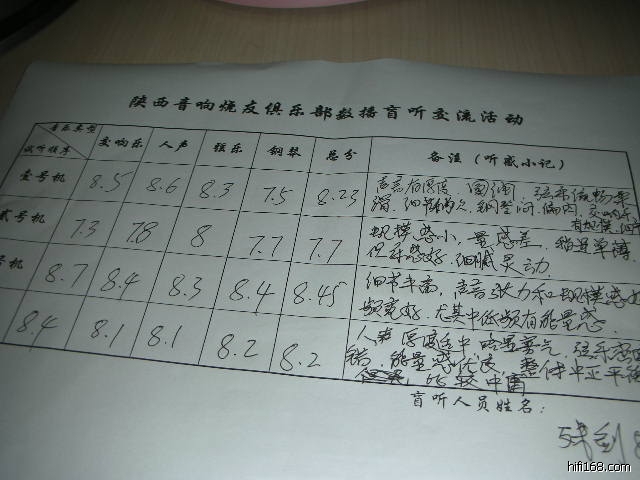 陕西音响烧友俱乐部数播盲听交流活动
音乐类型
试听顺序
交响乐 人声 弦乐 钢琴 总分 备注（听感小记）
壹号机 8.5 8.6 8.3 7.5 8.23 声音有厚度、圆润、弦乐流畅
滑、细节
贰号机 7.3 7.8 8 7.7 7.7 规模感小、量感差、稍显单薄
但乐感好、细腻灵动.
号机 8.7 8.4 8.3 8.4 8.45 细节丰富，声音张力和规模感
频宽好，尤其中低频有能量感.
8.4 8.1 8.1 8.2 8.2 人声厚度适中略显鼻气，弦乐
错，能量感优良，整体中正平
比较中庸
盲听人员姓名：
hifi168.com